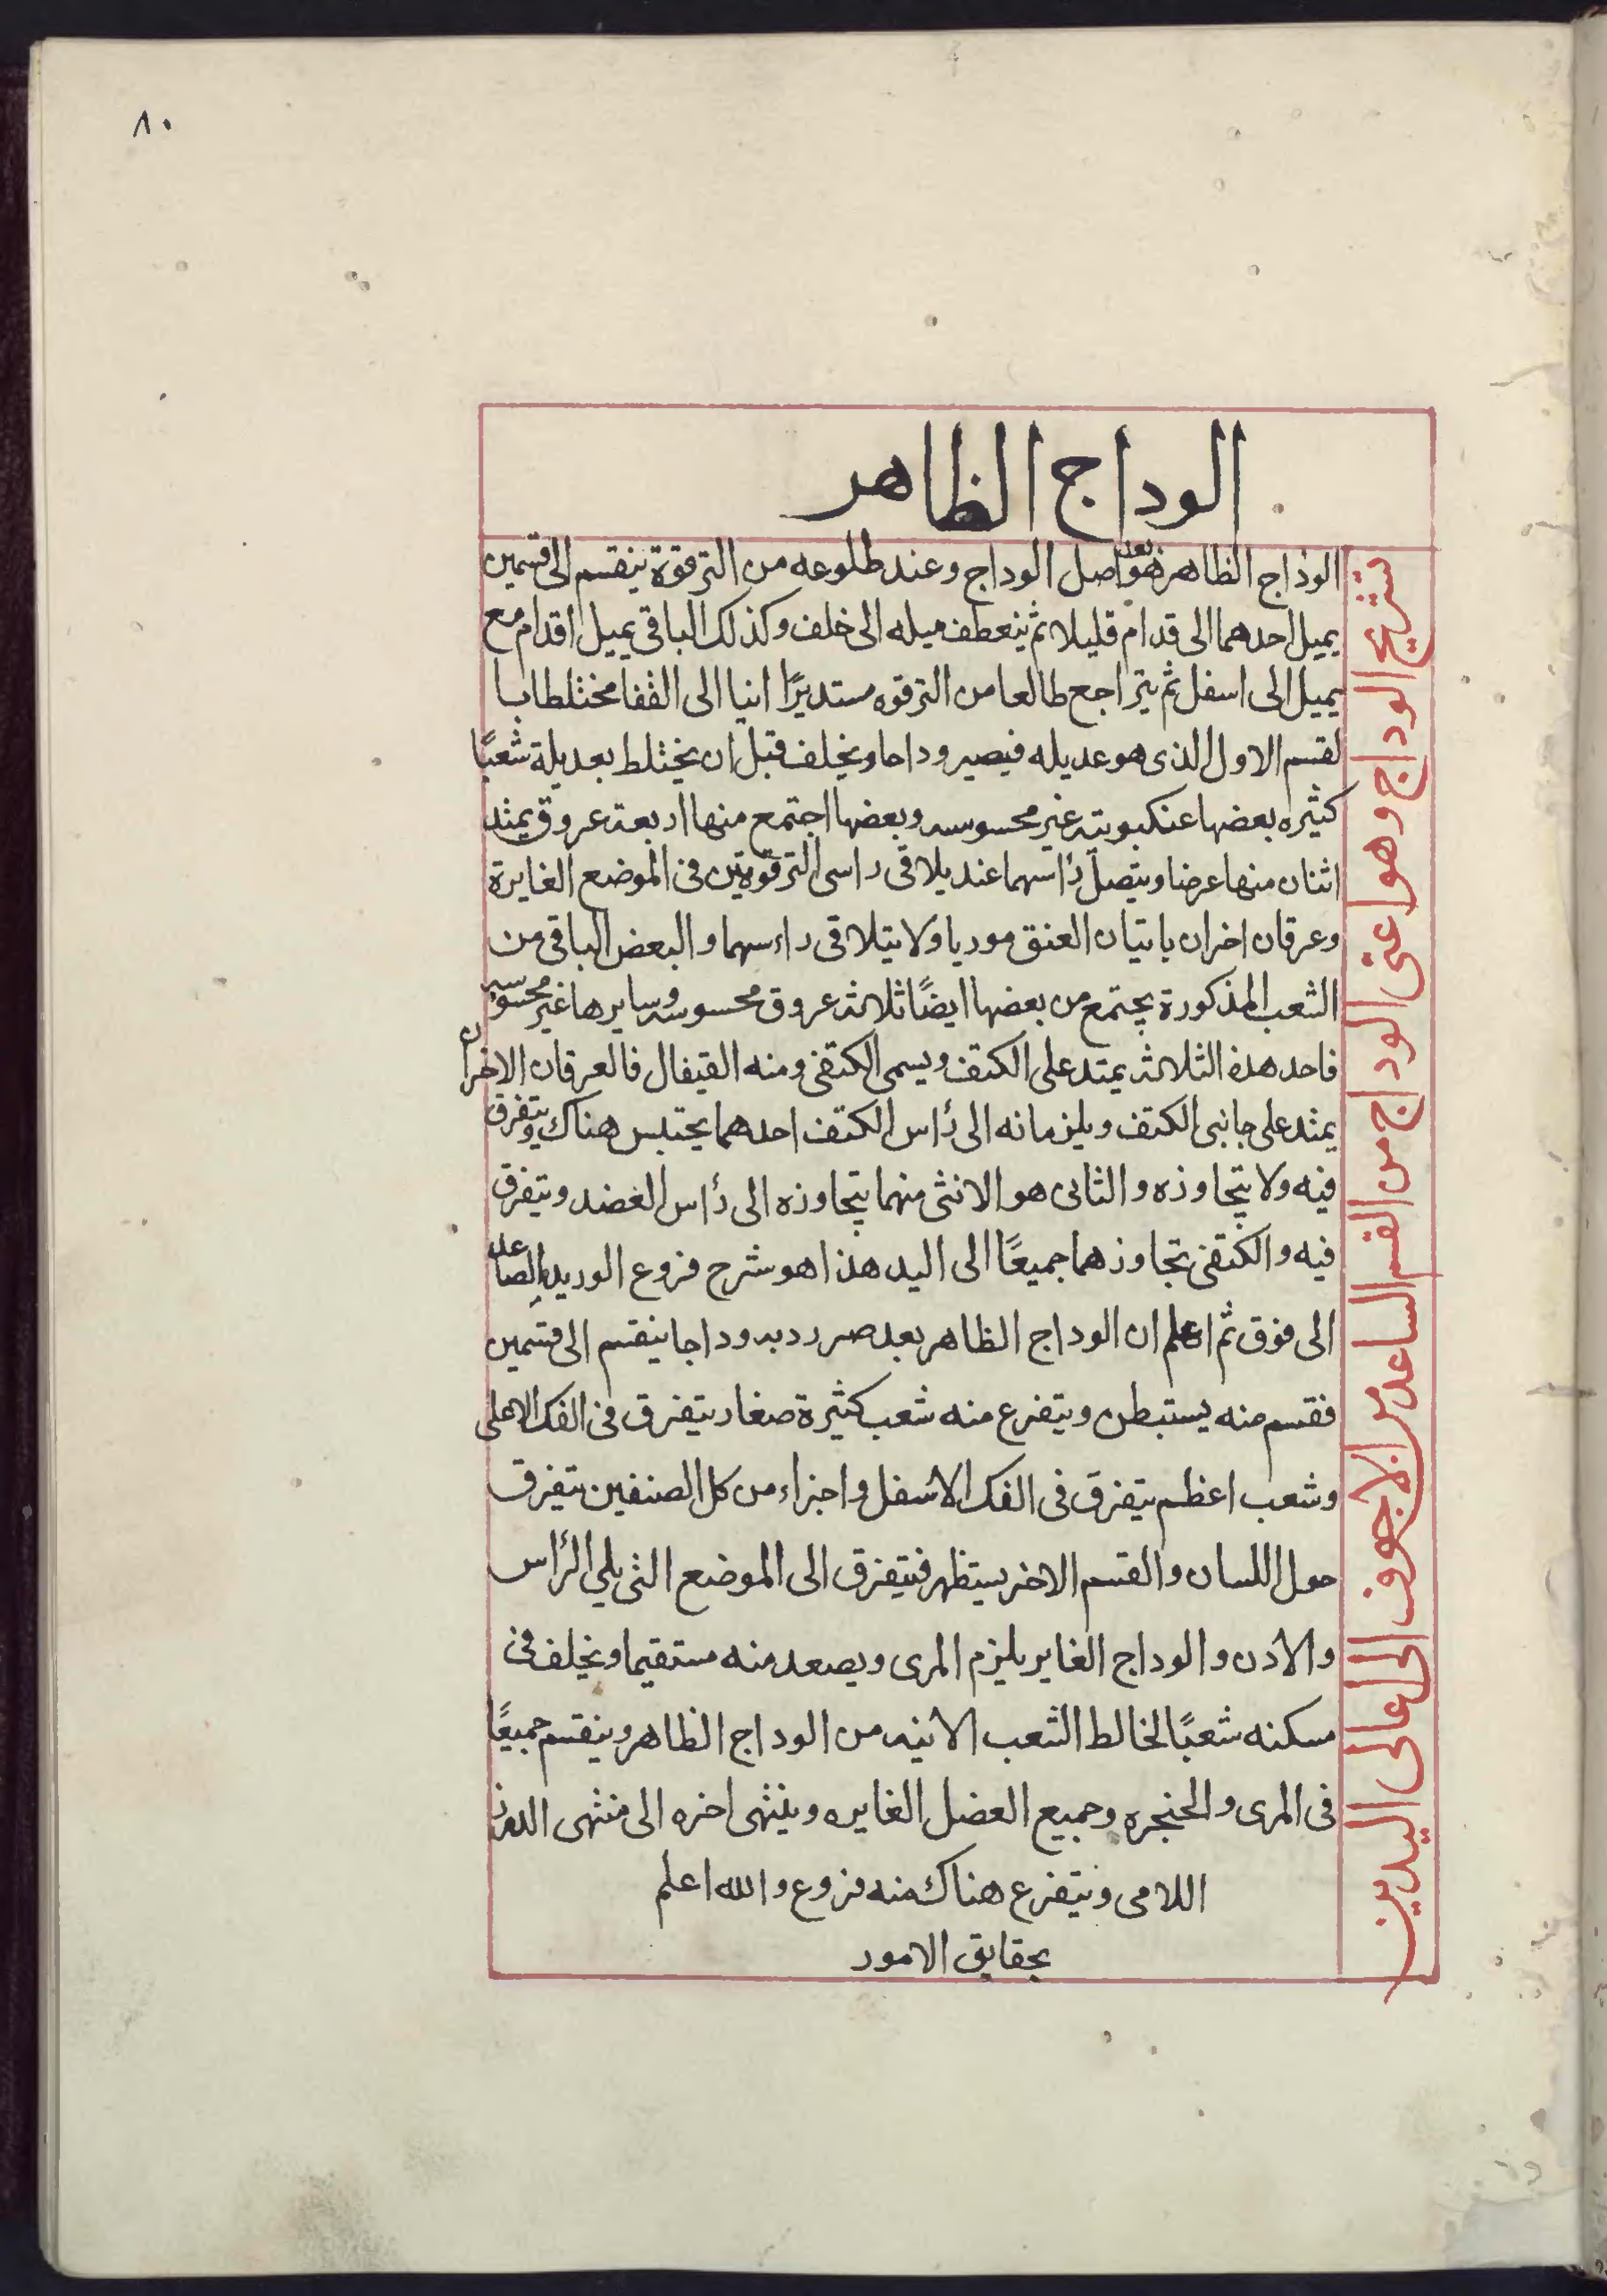 ٨٠
الوداج الظاهر
تشريح الوداج وهوا عنى الوداج من القسم الساعد من الاجوف الى اعالى اليدين
الوداج الظاهر فهو بعد اصل الوداج وعند طلوعه من الترقوة ينقسم الى قسمين
يميل احدهما الى قدام قليلا ثم ينعطف ميله الى خلف وكذلك الباقى يميل اقدام مع
يميل الى اسفل ثم يتراجع طالعا من الترقوه مستديرًا اتيا الى القفا مختلطا با
لقسم الاول الذى هو عديله فيصير وداحا ويخلف قبل ان يختلط بعديلة شعبًا
كثيره بعضها عنكبوبته غير محسوسه وبعضها اجتمع منها اربعة عروق يمتد
اثنان منها عرضا ويتصل رأسهما عند يلاقى راسى الترقوتين فى الموضع الغايرة
وعرقان اخران ياتيان العنق موريا ولا يتلاقى راءسهما والبعض الباقى من
الشعب المذكورة يجتمع من بعضها ايضًا ثلاثة عروق محسوسه وسايرها غير محسوسه
فاحد هذه الثلاثة يمتد على الكتف ويسمى الكتفى ومنه القيفال فالعرقان الاخران
يمتد على جانبى الكتف ويلزمانه الى رأس الكتف احدهما يحتبس هناك ويتفرق
فيه ولا يتجاوزه والثانى هو الانثى منهما يتجاوزه الى رأس الغضد ويتفرق
فيه والكتفى تجاوزهما جميعًا الى اليد هذا هو شرح فروع الوريد الصاعد
الى فوق ثم اعلم ان الوداج الظاهر بعد صرردبه وداجا ينقسم الى قسمين
فقسم منه يستبطن ويتفرع منه شعب كثيرة صغار يتفرق فى الفك الاعلى
وشعب اعظم يتفرق فى الفك الاسفل واجزاء من كل الصنفين تتفرق
حول اللسان والقسم الاخر يستظهر فيتفرق الى الموضع التى يلي الرأس
والاذن والوداج الغاير يلزم المرى ويصعد منه مستقيما ويخلف فى
مسكنه شعبًا لخالط الشعب الاتيه من الوداج الظاهر وينقسم جميعًا
فى المرى والحنجره وجميع العضل الغايره وينتهى اخره الى منتهى الدرز
اللامى ويتفرع هناك منه فروع والله اعلم
بحقايق الامور